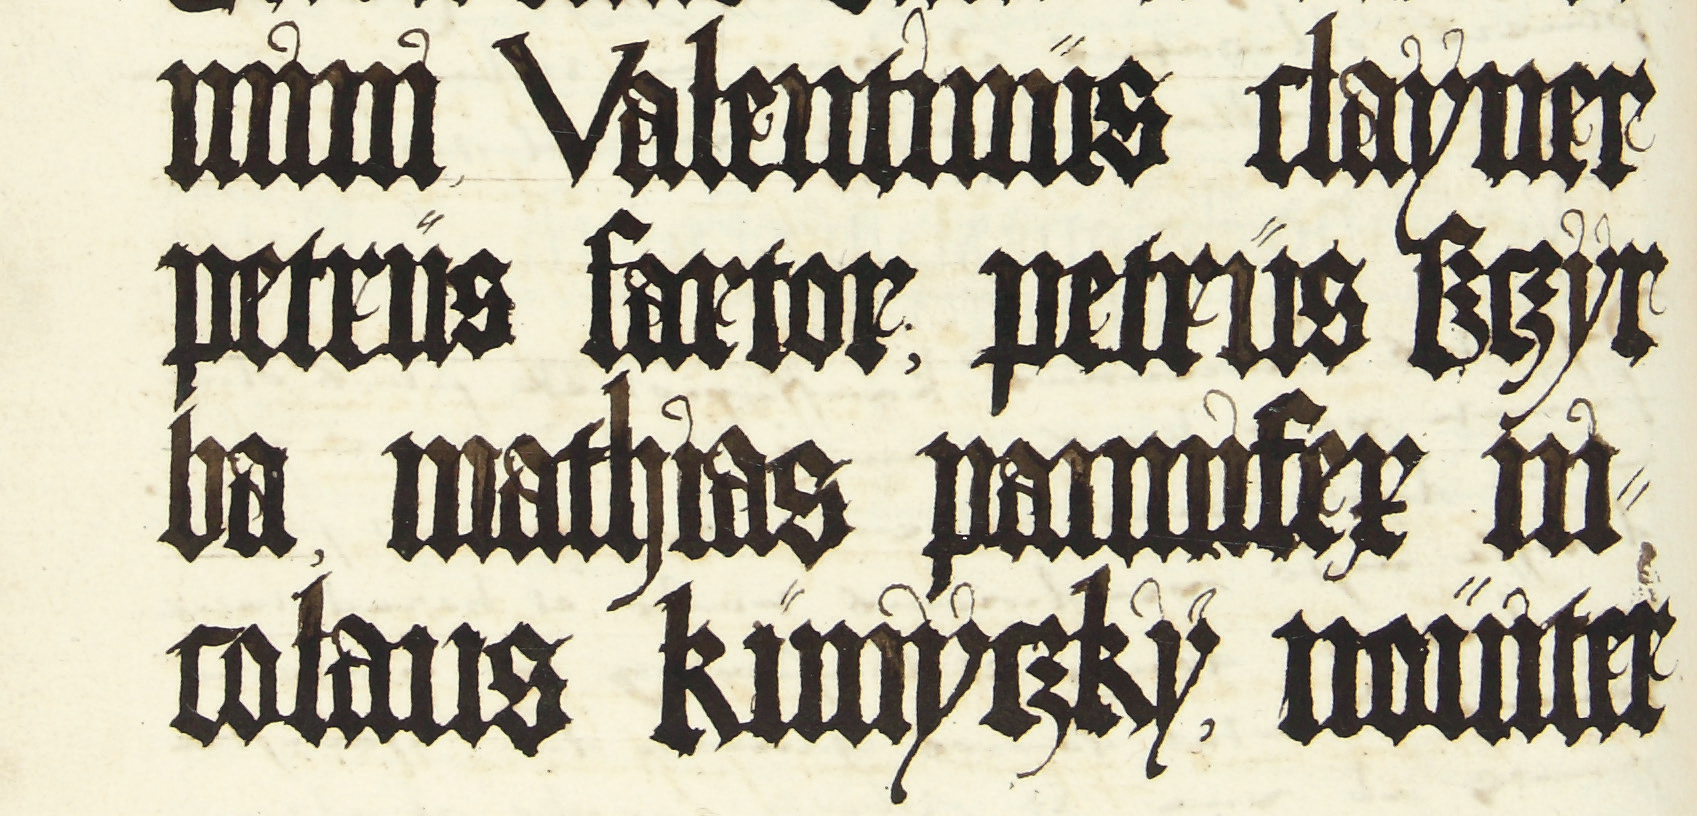 nimi, Valentinus clayner
petrus sartor, petrus sczyr
ba, mathias pannifex ni-
colaus kunyczky, nouiter